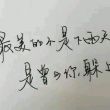 最美的不是下雨天
是曾与你躲